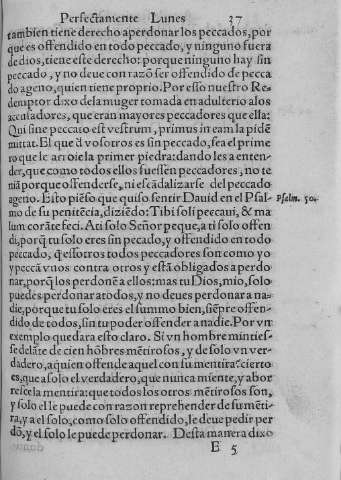 Perfectamente Lunes 37
tambien tiene derecho aperdonar los peccados, por
que es offendido en todo peccado, y ninguno fuera
de dios, tiene este derecho: porque ninguno hay sin
peccado, y no deue con razõ ser offendido de pecca
do ageno, quien tiene proprio. Por esso nuestro Re
demptor dixo de la muger tomada en adulterio a los
acusadores, que eran mayores peccadores que ella:
Qui sine peccato est vestrum, primus in eam lapidẽ
mittat. El que d̃ vosotros es sin peccado, sea el prime
ro que le arroie la primer piedra: dando les a enten-
der, que como todos ellos fuessẽn peccadores, no te
niã porque offenderse, ni escãdalizarse del peccado
ageno. Esto piẽso que quiso sentir Dauid en el Psal-
mo de su penitẽcia, diziẽdo: Tibi soli peccaui, & ma
lum corã te feci. A ti solo Señor peque, a ti solo offen
di, porq̃ tu solo eres sin pecado, y offendido en todo
peccado, q̃ essotros todos peccadores son como yo
y peccã vnos contra otros y estã obligados a perdo
nar, porq̃ los perdonẽ a ellos: mas tu Dios, mio, solo
puedes perdonar a todos, y no deues perdonar a na-
die, porque tu solo eres el summo bien, siẽpre offen-
dido, de todos, sin tu poder offender a nadie. Por vn
exemplo quedara esto claro. Si vn hombre minties-
se delãte de cien hõbres mẽtirosos, y de solo vn ver-
dadero, a quien offende aquel con su mentira? cierto
es, que a solo el verdadero, que nunca miente, y abor
resce la mentira: que todos los otros mẽtirosos son,
y solo el le puede con razon reprehender de su mẽti-
ra, y a el solo, como solo offendido, le deue pedir per
dõ, y el solo le puede perdonar. Desta manera dixo
E 5
Psalm. 50.